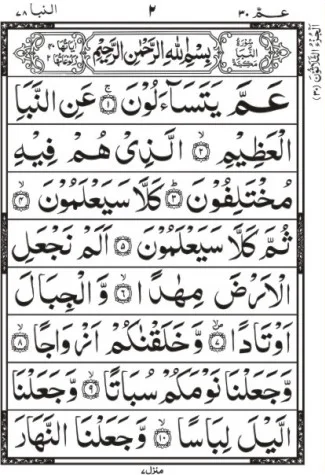 عـمّ ٣٠
٢
النبا ٧٨
الجزء الثلاثون (٣٠)
سُوْرَةُ النَّبَاِ مَكِّيَّةٌ
بِسْمِ اللّٰهِ الرَّحْمٰنِ الرَّحِيْمِ
اٰيَاتُهَا ٤٠ رُكُوْعَاتُهَا ٢
عَمَّ يَتَسَآءَلُوْنَ ۚ‏ ﴿١﴾ عَنِ النَّبَاِ
الْعَظِيْمِ ۙ‏ ﴿٢﴾ الَّذِىْ هُمْ فِيْهِ
مُخْتَلِفُوْنَ ؕ‏ ﴿٣﴾ كَلَّا سَيَعْلَمُوْنَ ۙ‏ ﴿٤﴾
ثُمَّ كَلَّا سَيَعْلَمُوْنَ ﴿٥﴾ اَلَمْ نَجْعَلِ
الْاَرْضَ مِهٰدًا ۙ‏ ﴿٦﴾ وَّالْجِبَالَ
اَوْتَادًا ۙ‏ ﴿٧﴾ وَّخَلَقْنٰكُمْ اَزْوَاجًا ۙ‏ ﴿٨﴾
وَّجَعَلْنَا نَوْمَكُمْ سُبَاتًا ۙ‏ ﴿٩﴾ وَّجَعَلْنَا
الَّيْلَ لِبَاسًا ۙ‏ ﴿١٠﴾ وَّجَعَلْنَا النَّهَارَ
منزل ٧